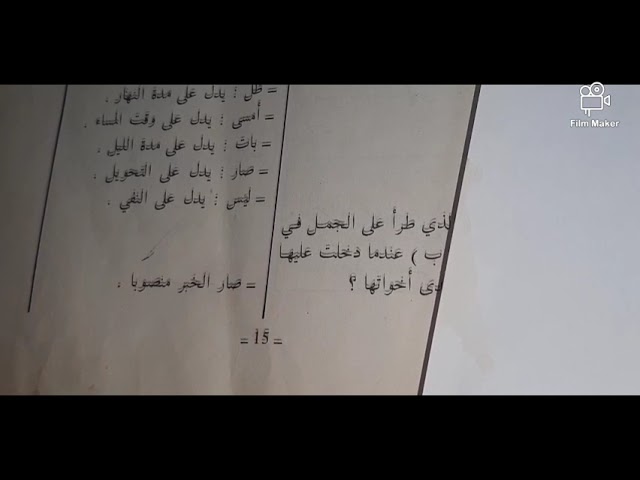 = ظل : يدل على مدة النهار .
= أمسى : يدل على وقت المساء .
= بات : يدل على مدة الليل .
= صار : يدل على التحويل .
= ليس : يدل على النفي .
= صار الخبر منصوبا .
طرأ على الجمل في
ب ) عندما دخلت عليها
أخواتها ؟
= 15 =
Film Maker